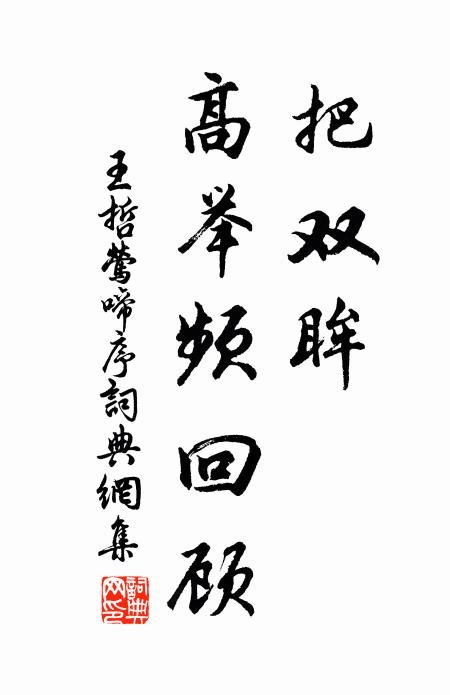 把双眸
高举频回顾
王哲莺啼序詞典網集
詞典网印